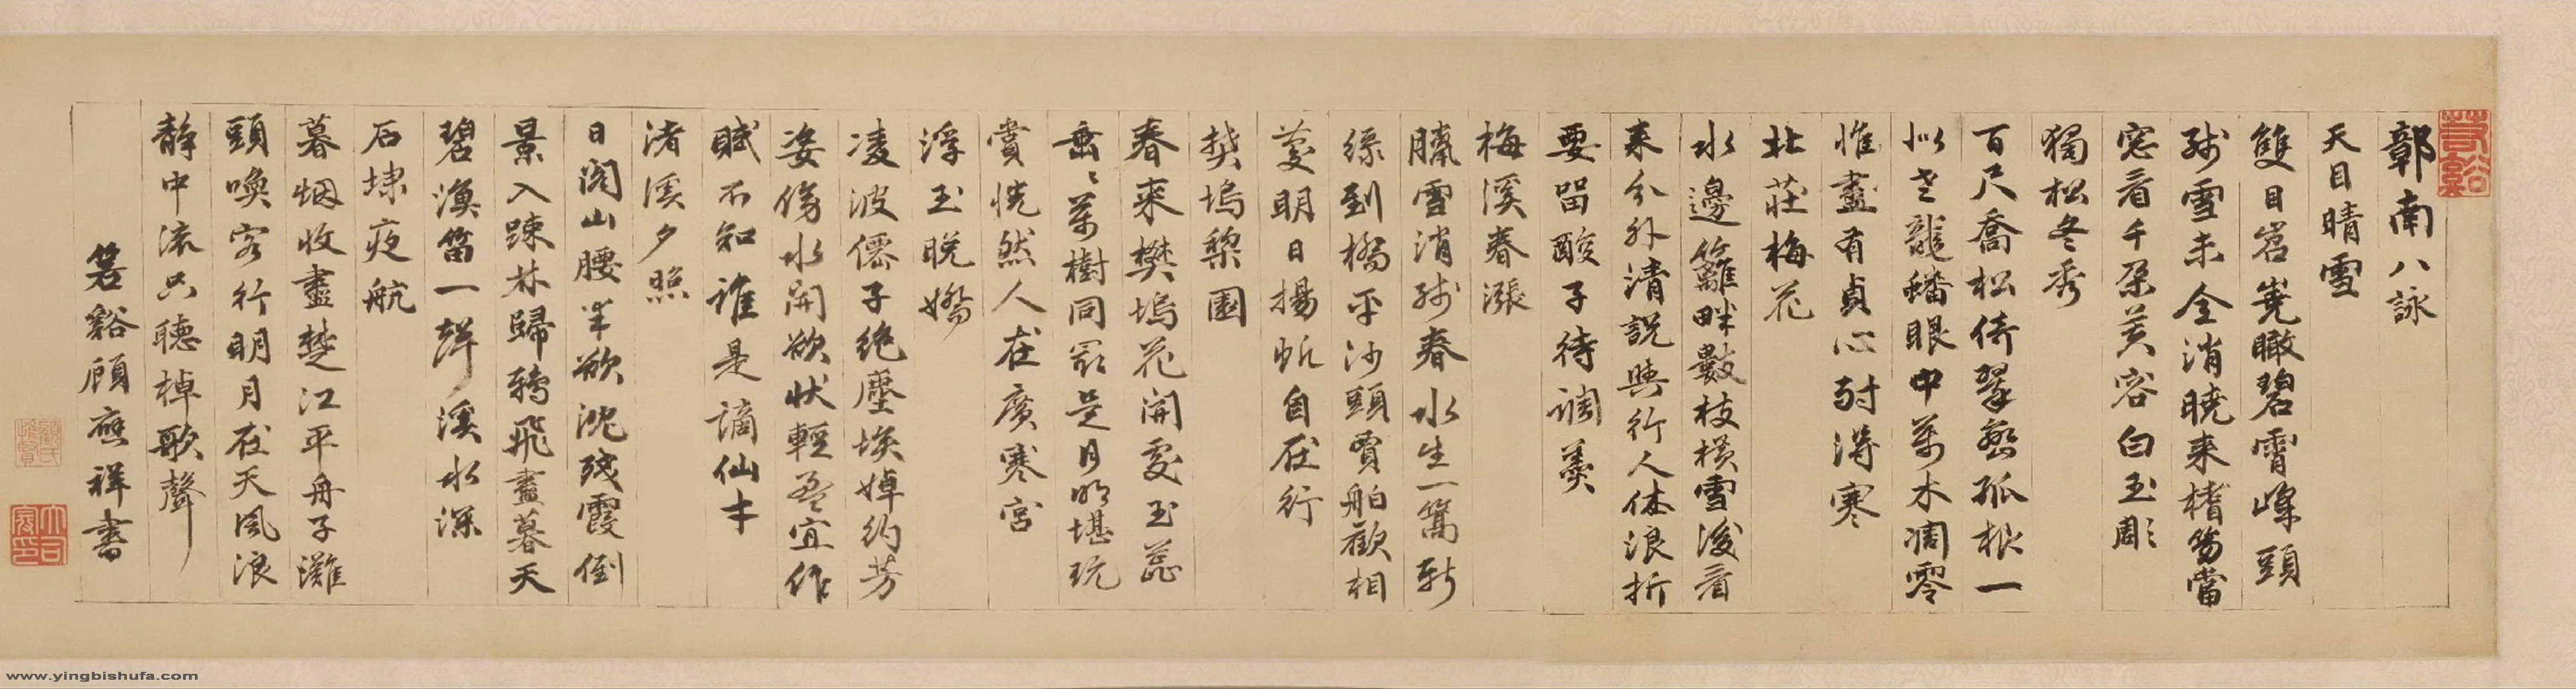 鄣南八詠
天目晴雪
雙目岧嶤瞰碧霄峰頭
殘雪未全消曉来檣笏當
窓看千朶芙容白玉彫
獨松冬秀
百尺喬松倚翠巒孤根一
似老龍蟠眼中萬木凋零
惟盡有貞心耐得寒
北莊梅花
水邊籬畔數枝橫雪後看
来分外清說與行人休浪折
要留酸子待調羹
梅溪春漲
臘雪消殘春水生一篙新
綠到橋平沙頭賈舶歡相
慶明日揚帆自在行
樊塢梨園
春来樊塢花開處玉蕊
垂垂萬樹同最是月明堪玩
賞恍然人在廣寒宮
浮玉晚嬌
凌波僊子絶塵埃婥約芳
姿傍水開欲狀輕盈宜作
賦不知誰是謫仙才
渚溪夕照
日閣山腰半欲沈殘霞倒
景入踈林歸鴉飛盡暮天
碧漁笛一聲溪水深
石埭夜航
暮烟收盡楚江平舟子灘
頭喚客行明月在天風浪
靜中流只聽棹歌聲
箬谿顧應祥書
箬谿
www.yingbishufa.com